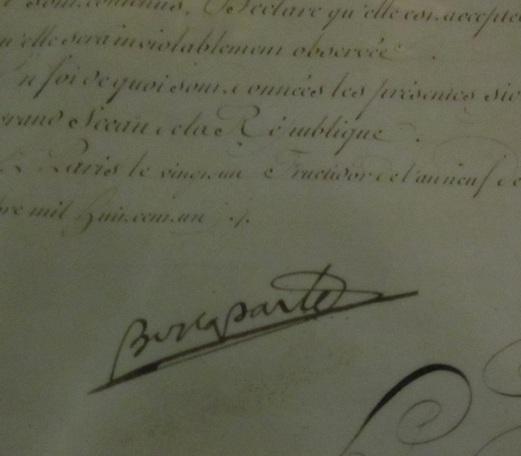 sont contenus. Déclare qu'elle est acceptée
qu'elle sera inviolablement observée
En foi de quoi sont données les présentes
grand Sceau de la République.
à Paris le vingt un Fructidor de l'an neuf de
bre mil huit cent un
Bonaparte